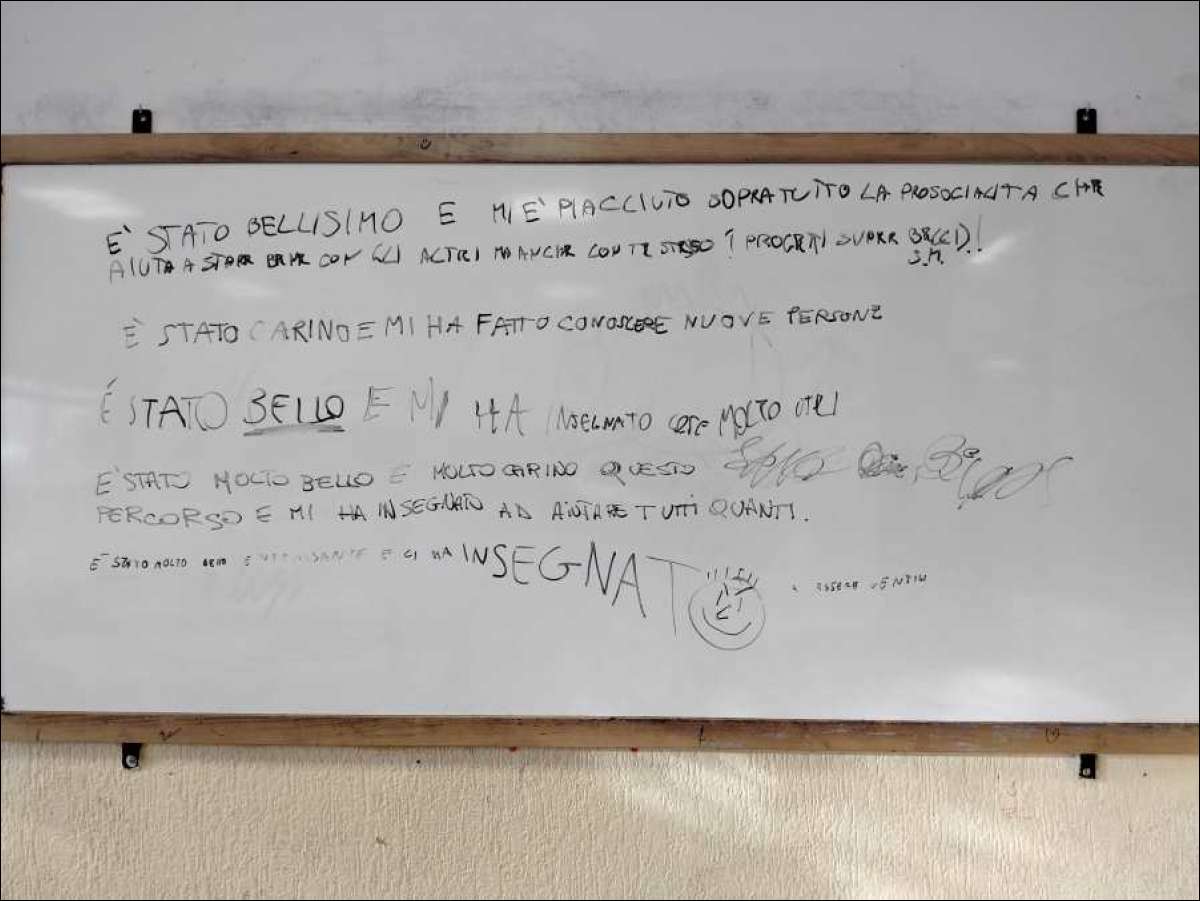 E' STATO BELLISIMO E MI E' PIACCIUTO SOPRATUTTO LA PROSOCIALITA CHE
AIUTA A STARE BENE CON GLI ALTRI MA ANCHE CON TE STESSO
È STATO CARINO E MI HA FATTO CONOSCERE NUOVE PERSONE
É STATO BELLO E MI HA INSEGNATO COSE MOLTO UTILI
E' STATO MOLTO BELLO E MOLTO CARINO QUESTO
PERCORSO E MI HA INSEGNATO AD AIUTARE TUTTI QUANTI.
E' STATO MOLTO BELLO E CI HA INSEGNATO A ESSERE